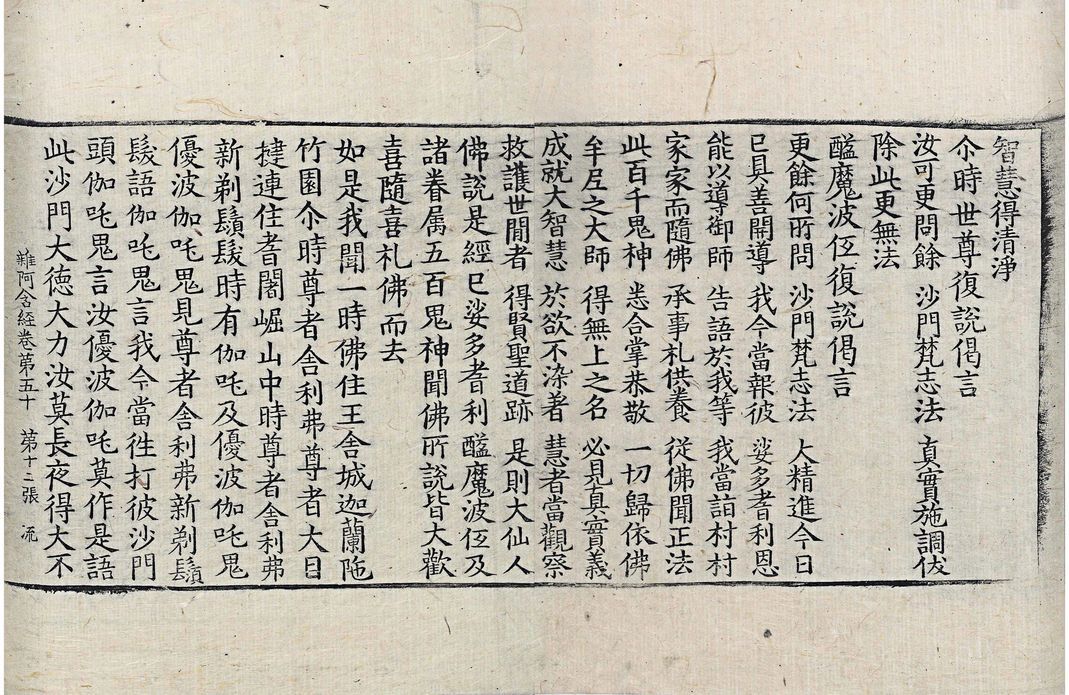 智慧得清淨
尒時世尊復說偈言
汝可更問餘　沙門梵志法　真實施調伏
除此更無法
醯魔波伍復說偈言
更餘何所問　沙門梵志法　大精進今日
已具善開導　我今當報彼　娑多耆利恩
能以導御師　告語於我等　我當詣村村
家家而隨佛　承事礼供養　從佛聞正法
此百千鬼神　悉合掌恭敬　一切歸依佛
牟尼之大師　得無上之名　必見真實義
成就大智慧　於欲不染著　慧者當觀察
救護世閒者　得賢聖道跡　是則大仙人
佛說是經已娑多耆利醯魔波伍及
諸眷属五百鬼神聞佛所說皆大歡
喜隨喜礼佛而去
如是我聞一時佛住王舍城迦蘭陁
竹園尒時尊者舍利弗尊者大目
揵連住耆闍崛山中時尊者舍利弗
新剃鬚髮時有伽吒及優波伽吒鬼
優波伽吒鬼見尊者舍利弗新剃鬚
髮語伽吒鬼言我今當徃打彼沙門
頭伽吒鬼言汝優波伽吒莫作是語
此沙門大德大力汝莫長夜得大不
雜阿含経卷第五十　第十二張　流